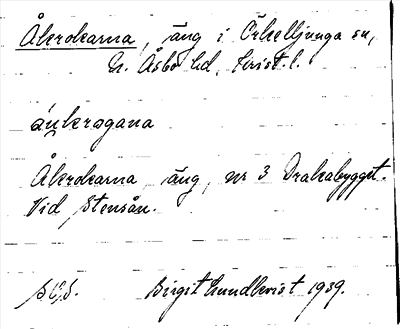 Åkrokarna, äng i Örkelljunga sn,
N. Åsbo hd, Krist. l.
Åkrokarna äng, nr 3 Drakabygget.
Vid Stensån.
Birgit Lundkvist 1939.